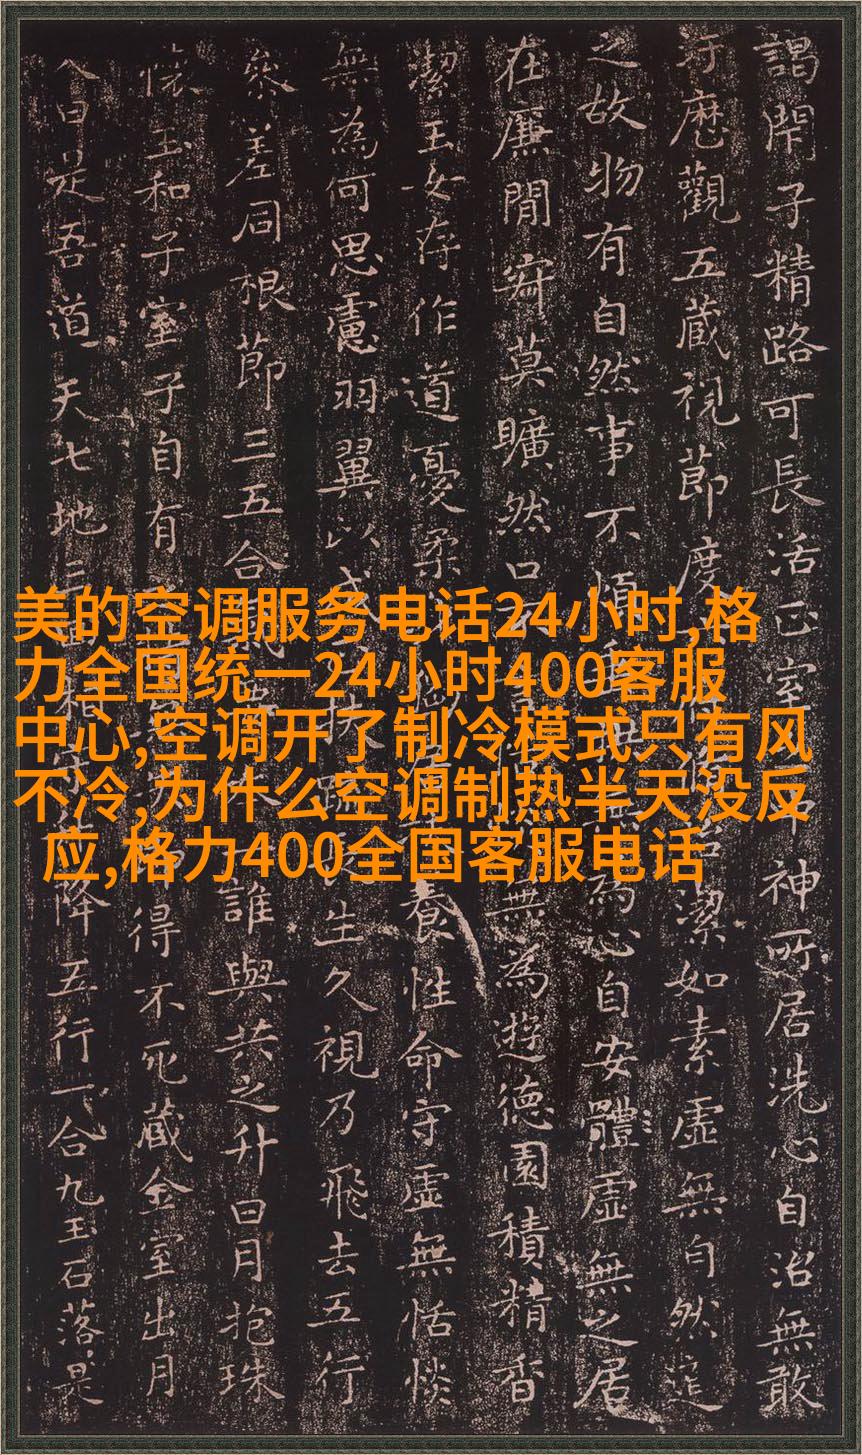 美的空调服务电话24小时,格
力全国统一24小时400客服
中心,空调开了制冷模式只有风
不冷,为什么空调制热半天没反
应,格力400全国客服电话
子精路可長活正室 神所居洗心自治無敢
歷觀五藏視節度 潔如素虛無自然道
之故物有自然事不煩 為心自安體虛無之居
在廉間 莫曠然口 無為遊德園積精香
潔玉女存作道憂柔 養性命守虛無恬惔
無為何思慮羽翼以成 扶 生久視乃飛去五行
參差同根節三五合 誰與共之升日月抱珠
懷玉和子室子自有 得不死藏金室出月
入日是吾道天七地三 降五行一合九玉石落是